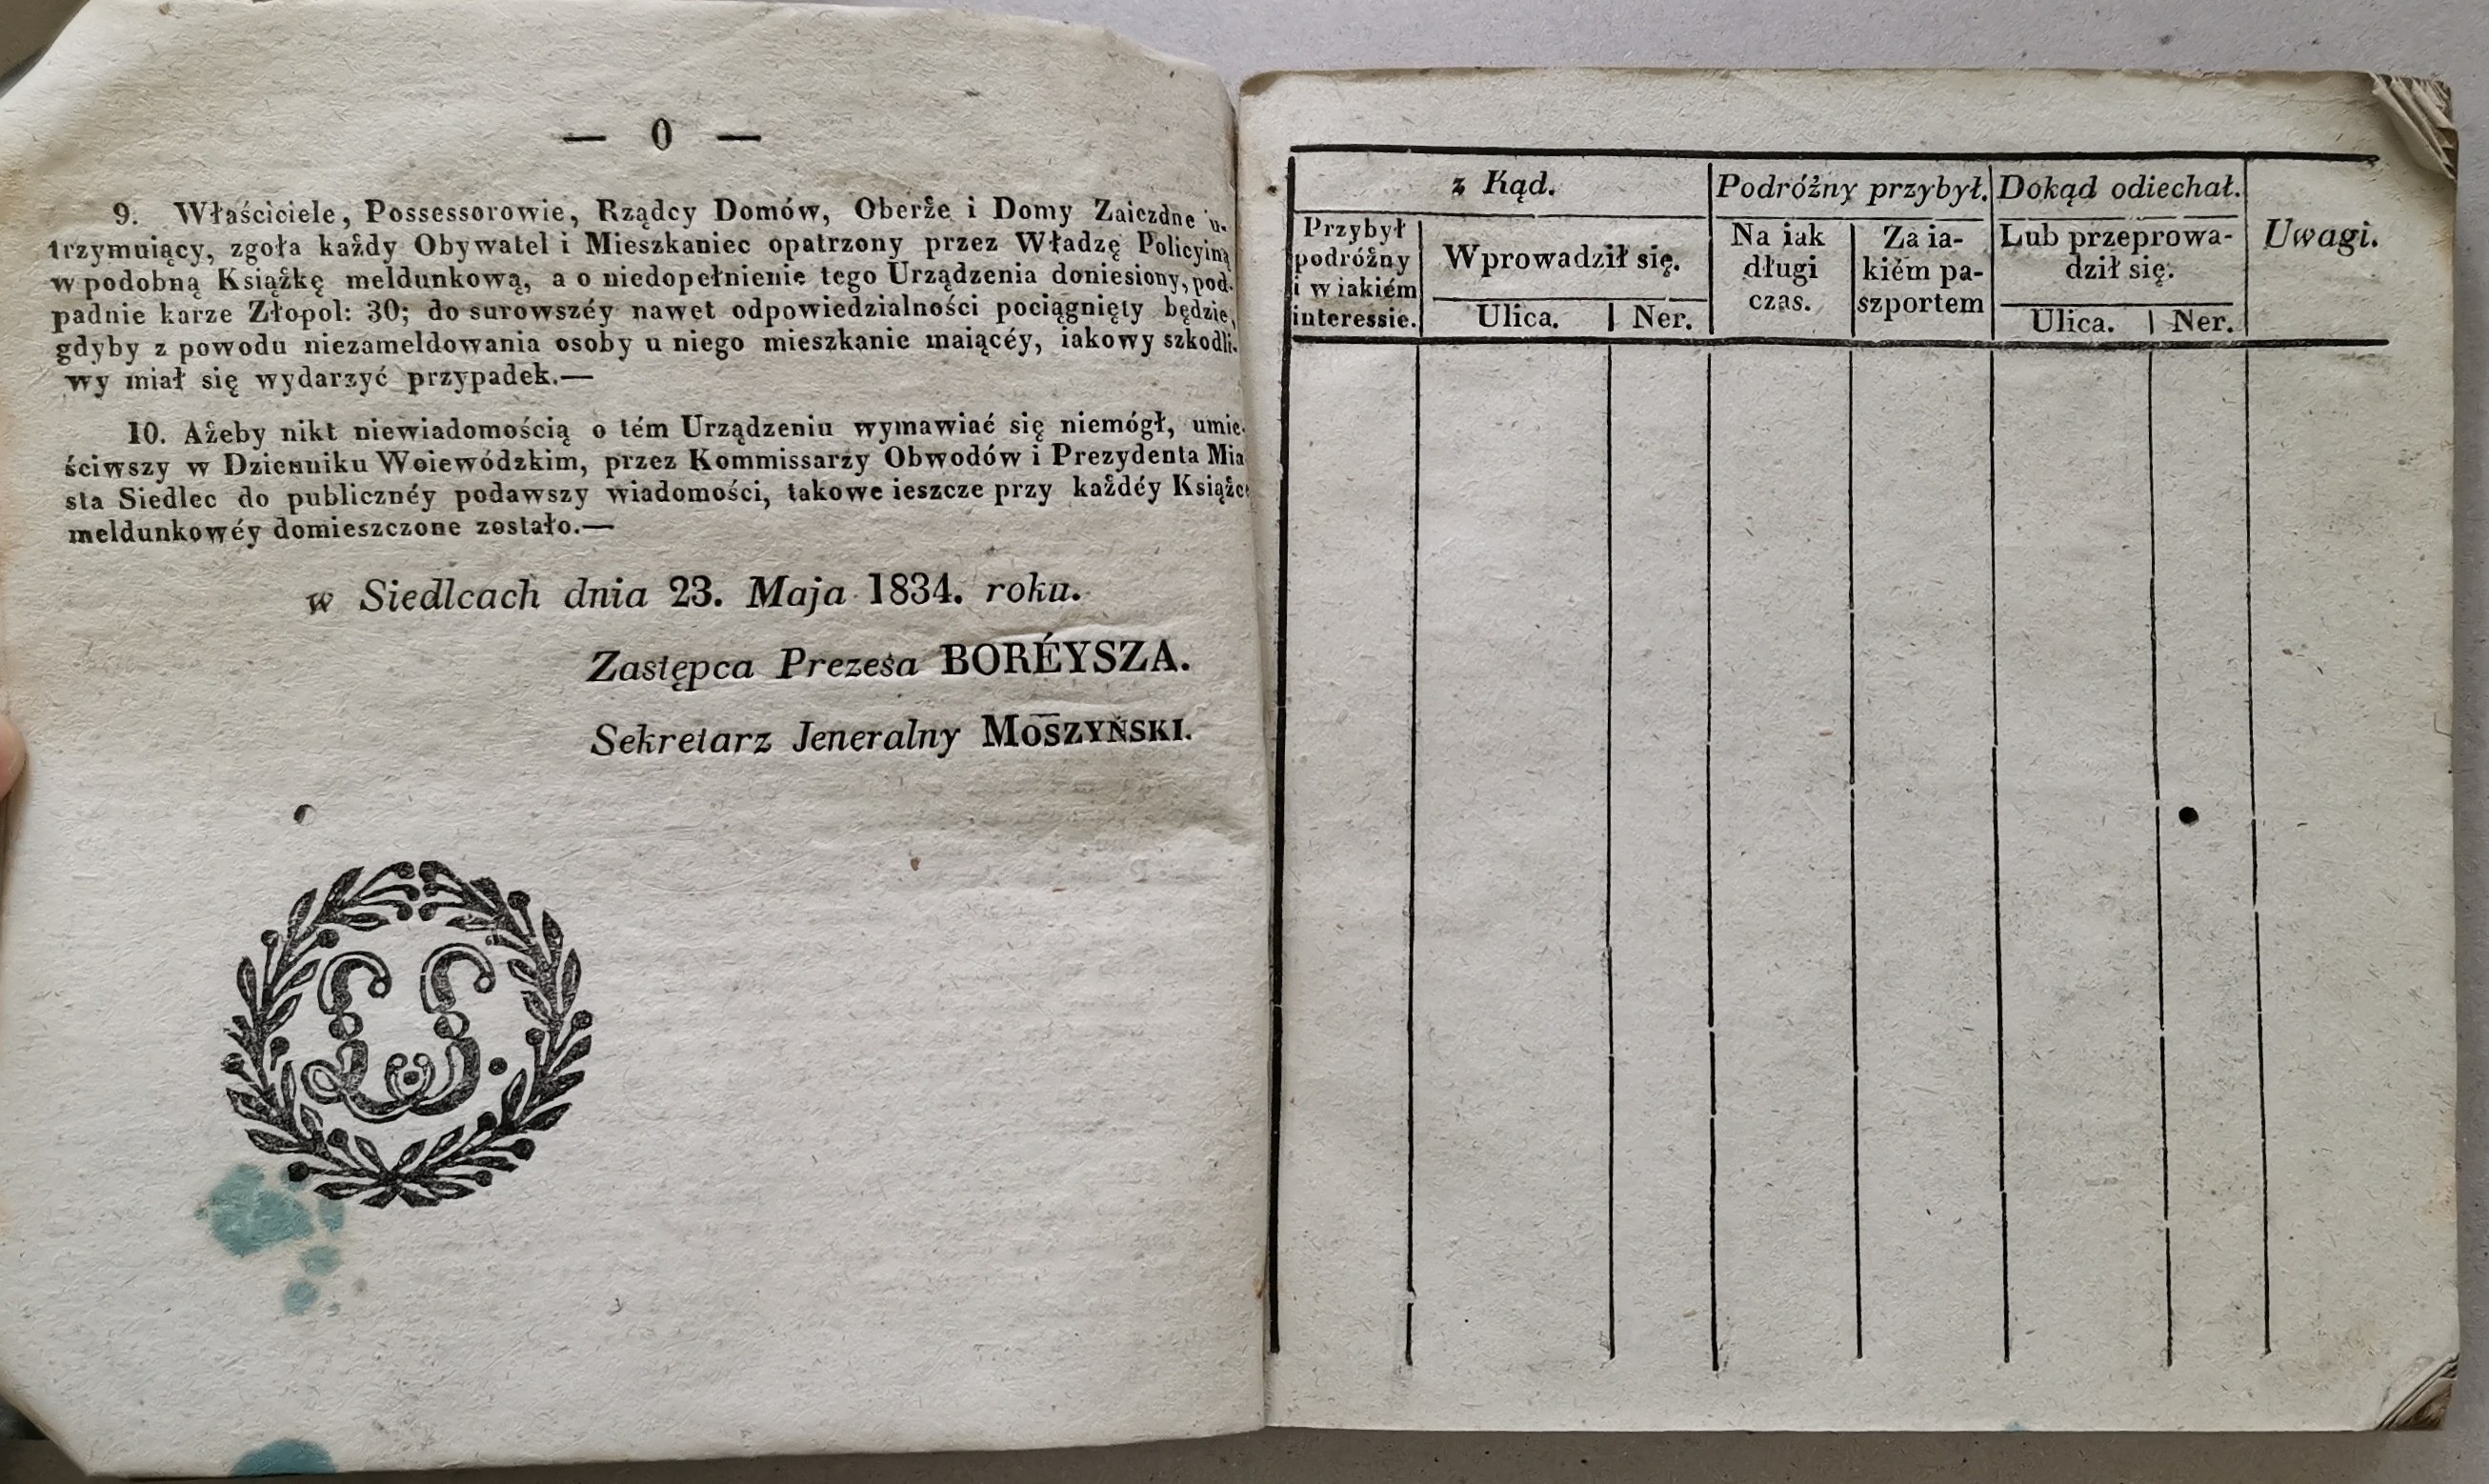 — 0 —
9. Właściciele, Possessorowie, Rządcy Domów, Oberże i Domy Zaiezdne u-
trzymuiący, zgoła każdy Obywatel i Mieszkaniec opatrzony przez Władzę Policyiną
w podobną Książkę meldunkową, a o niedopełnienie tego Urządzenia doniesiony, pod-
padnie karze Złopol: 30; do surowszéy nawet odpowiedzialności pociągnięty będzie,
gdyby z powodu niezameldowania osoby u niego mieszkanie maiącéy, iakowy szkodli-
wy miał się wydarzyć przypadek.—
10. Ażeby nikt niewiadomością o tém Urządzeniu wymawiać się niemógł, umie-
ściwszy w Dzienniku Woiewódzkim, przez Kommissarzy Obwodów i Prezydenta Mia
sta Siedlec do publicznéy podawszy wiadomości, takowe ieszcze przy każdéy Książc
meldunkowéy domieszczone zostało.—
w Siedlcach dnia 23. Maja 1834. roku.
Zastępca Prezesa BORÉYSZA.
Sekretarz Jeneralny MOSZYŃSKI.
LS.
z Kąd.
Przybył
podróżny
i w iakiém
interessie.
Wprowadził się.
Ulica. | Ner.
Podróżny przybył.
Na iak
długi
czas.
Za ia-
kiém pa-
szportem
Dokąd odiechał.
Lub przeprowa-
dził się.
Ulica. | Ner.
Uwagi.